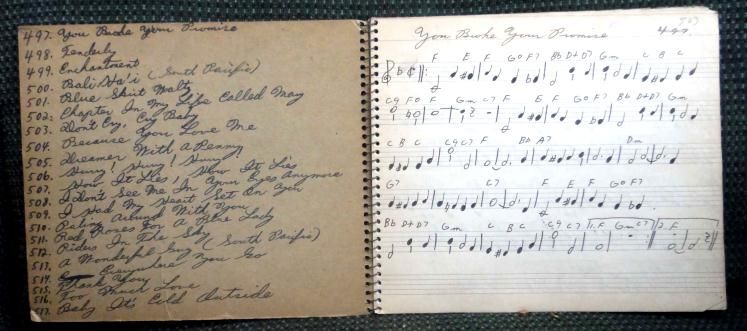 497. You Broke Your Promise
498. Tenderly
499. Enchantment
500. Bali Ha'i (South Pacific)
501. Blue Skirt Waltz
502. Chapter In My Life Called Mary
503. Don't Cry, Cry Baby
504. Because You Love Me
505. Dreamer With A Penny
506. Hurry! Hurry! Hurry!
507. How It Lies, How It Lies
508. I Don't See Me In Your Eyes Anymore
509. I Had My Heart Set On You
510. Paling Around With You
511. Red Roses For A Blue Lady
512. Riders In The Sky
513. A Wonderful Guy (South Pacific)
514. Everywhere You Go
515. Thank You
516. Too Much Love
517. Baby It's Cold Outside
You Broke Your Promise 497.
F E F G0 F7 Bb D+ D7 Gm C B C
C9 F0 F Gm C7 F E F G0 F Bb D+ D7 Gm
C B C C9 C7 F Bb A7 Dm
G7 C7 F E F G0 F7
Bb D+ D7 Gm C B C C9 C7 1. F Gm C7 2. F